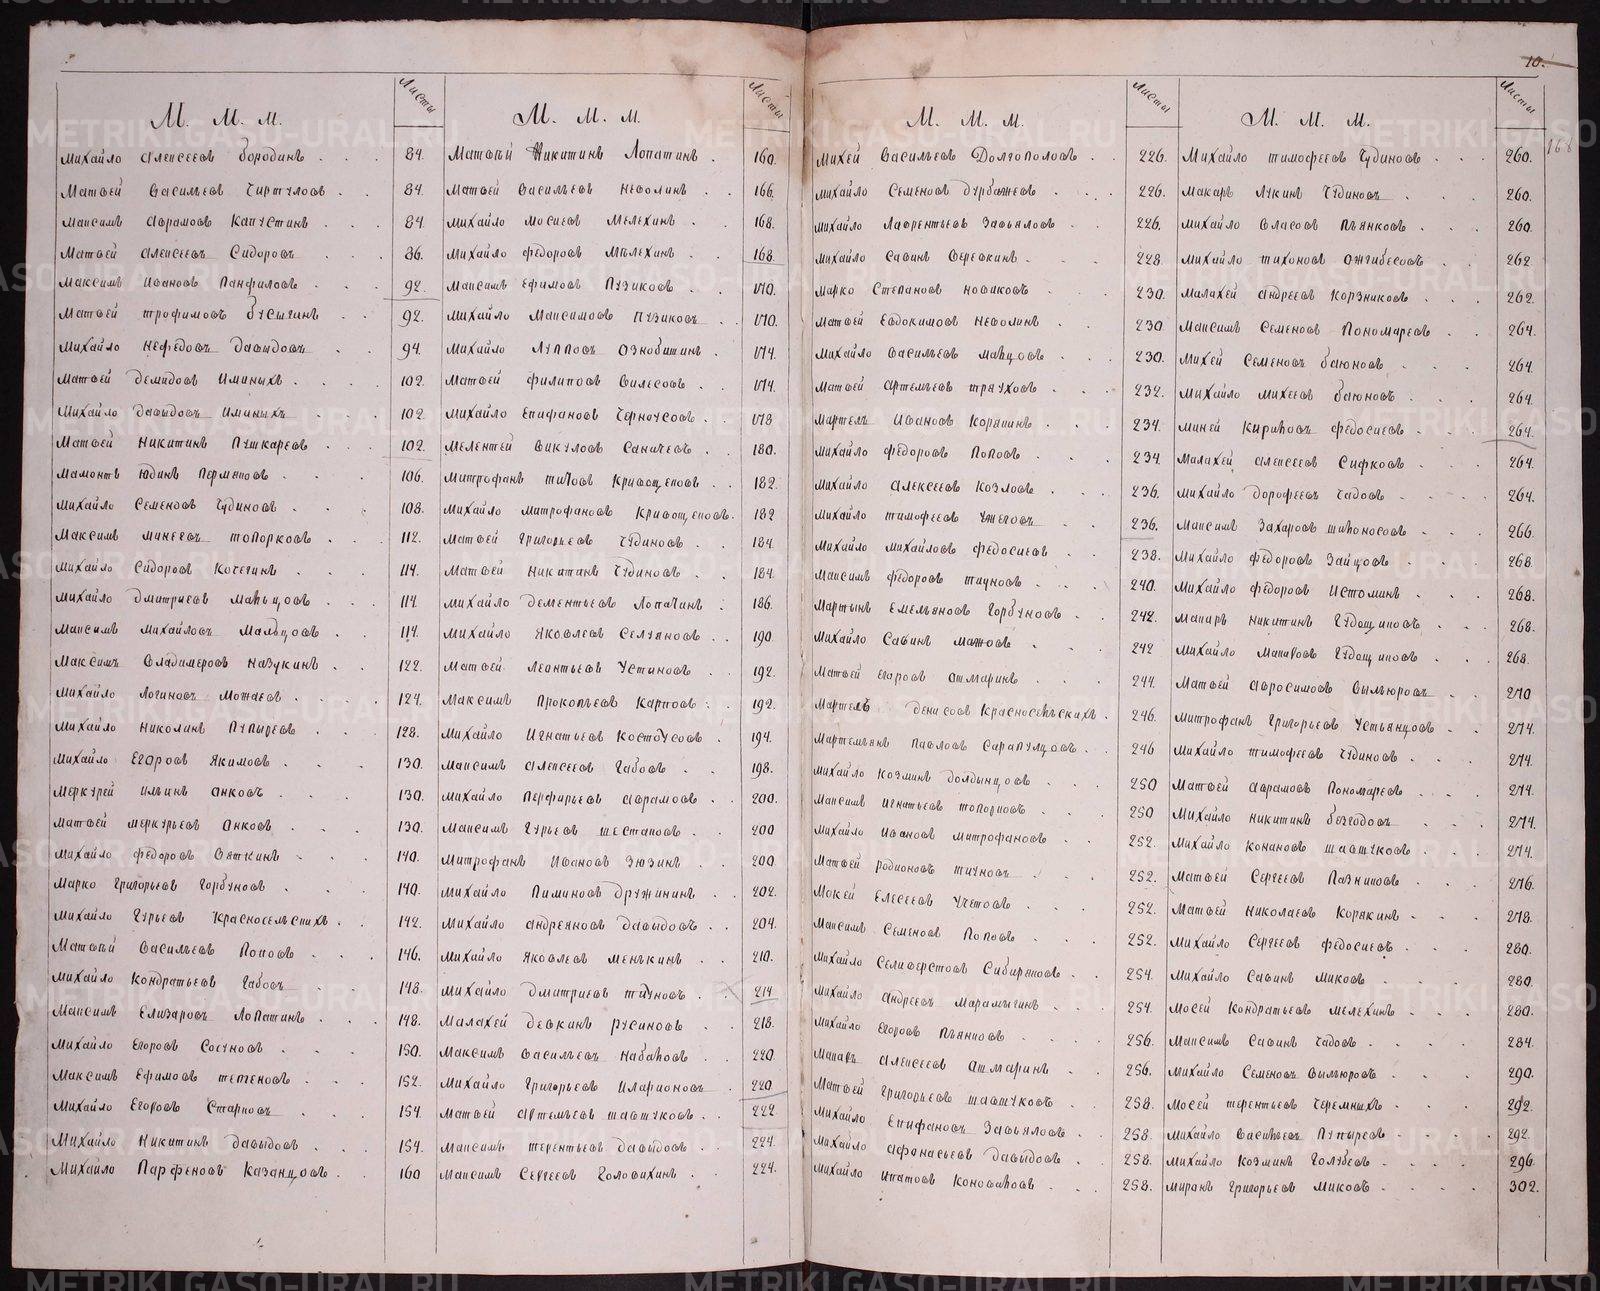 10.
168
М. М. М.
Листы
Михайло Алексеевъ Бородинъ 84.
Матвей Васильевъ Чиртуловъ 84.
Максимъ Аврамовъ Капустинъ 84.
Матвей Алексеевъ Сидоровъ 86.
Максимъ Ивановъ Панфиловъ 92.
Матвей Трофимовъ Бусыгинъ 92.
Михайло Нефедовъ Давыдовъ 94.
Матвей Демидовъ Иминыхъ 102.
Михайло Давыдовъ Иминыхъ 102.
Матвей Никитинъ Пушкаревъ 102.
Мамонтъ Юдинъ Пермяковъ 106.
Михайло Семеновъ Чудиновъ 108.
Максимъ Минеевъ Топорковъ 112.
Михайло Сидоровъ Кочегинъ 114.
Михайло Дмитриевъ Мальцовъ 114.
Максимъ Михайловъ Мальцовъ 114.
Максимъ Владимеровъ Назукинъ 122.
Михайло Логиновъ Можаевъ 124.
Михайло Николинъ Пупыревъ 128.
Михайло Егоровъ Якимовъ 130.
Меркурей Ильинъ Анковъ 130.
Матвей Меркурьевъ Анковъ 130.
Михайло Федоровъ Вяткинъ 140.
Марко Григорьевъ Горбуновъ 140.
Михайло Гурьевъ Красносельскихъ 142.
Матвей Васильевъ Поповъ 146.
Михайло Кондратьевъ Габовъ 148.
Максимъ Елизаровъ Лопатинъ 148.
Михайло Егоровъ Сосуновъ 150.
Максимъ Ефимовъ 152.
Михайло Егоровъ Старковъ 154.
Михайло Никитинъ Давыдовъ 154.
Михайло Парфеновъ Казанцовъ 160
М. М. М.
Листы
Матвей Никитинъ Лопатинъ 160.
Матвей Васильевъ Неволинъ 166.
Михайло Мосиевъ Мелехинъ 168.
Михайло Федоровъ Мелехинъ 168.
Максимъ Ефимовъ Пузиковъ 170.
Михайло Максимовъ Пузиковъ 170.
Михайло Лупповъ Ознобишинъ 174.
Матвей Филиповъ Вилесовъ 174.
Михайло Епифановъ Черноусовъ 178
Мелентей Викуловъ Саначевъ 180.
Митрофанъ Титовъ Кривощековъ 182.
Михайло Митрофановъ Кривощековъ 182
Матвей Григорьевъ Чудиновъ 184.
Матвей Никитинъ Чудиновъ 184.
Михайло Дементьевъ Лопатинъ 186.
Михайло Яковлевъ Селуяновъ 190.
Матвей Леонтьевъ Устиновъ 192.
Максимъ Прокопьевъ Карповъ 192.
Михайло Игнатьевъ Костоусовъ 194.
Максимъ Алексеевъ Габовъ 198.
Михайло Перфирьевъ Аврамовъ 200.
Максимъ Гурьевъ Шестаковъ 200
Митрофанъ Ивановъ Зюзинъ 200.
Михайло Пиминовъ Дружининъ 202.
Михайло Андреяновъ Давыдовъ 204.
Михайло Яковлевъ Менькинъ 210.
Михайло Дмитриевъ Тиуновъ 214
Малахей Девкинъ Русиновъ 218.
Максимъ Васильевъ Набаковъ 220
Михайло Григорьевъ Иларионовъ 220
Матвей Артемьевъ Шавшуковъ 222
Максимъ Терентьевъ Давыдовъ 224.
Максимъ Сергеевъ Головихинъ 224.
М. М. М.
Листы
Михей Васильевъ Долгополовъ 226.
Михайло Семеновъ Дурбажевъ 226.
Михайло Лаврентьевъ Завьяловъ 226.
Михайло Савинъ Веревкинъ 228.
Марко Степановъ Новиковъ 230.
Матвей Евдокимовъ Неволинъ 230
Михайло Васильевъ Мальцовъ 230.
Матвей Артемьевъ Треуховъ 232.
Мартелъ Ивановъ Корякинъ 234.
Михайло Федоровъ Поповъ 234.
Михайло Алексеевъ Козловъ 236.
Михайло Тимофеевъ Ужеговъ 236.
Михайло Михайловъ Федосиевъ 238.
Максимъ Федоровъ Тиуновъ 240.
Мартынъ Емельяновъ Горбуновъ 242.
Михайло Савинъ Мазовъ 242
Матвей Егоровъ Ашмаринъ 244.
Мартелъ Денисовъ Красносельскихъ 246.
Мартемьянъ Павловъ Сарапулцовъ 246
Михайло Козминъ Долдынцовъ 250
Максимъ Игнатьевъ Топорковъ 250
Михайло Ивановъ Митрофановъ 252.
Матвей Родионовъ Тиуновъ 252.
Мокей Елесеевъ Учетовъ 252.
Максимъ Семеновъ Поповъ 252.
Михайло Селиверстовъ Сибиряковъ 254.
Михайло Андреевъ Марамыгинъ 254.
Михайло Егоровъ Пьянковъ 256.
Макаръ Алексеевъ Ашмаринъ 256.
Матвей Григорьевъ Шавшуковъ 258.
Михайло Епифановъ Завьяловъ 258.
Михайло Афонасьевъ Давыдовъ 258.
Михайло Ипатовъ Коноваловъ 258.
М. М. М.
Листы
Михайло Тимофеевъ Чудиновъ 260.
Макаръ Лукинъ Чудиновъ 260.
Михайло Власовъ Пьянковъ 260
Михайло Тихоновъ Ожгибесовъ 262
Малахей Андреевъ Корзниковъ 262.
Максимъ Семеновъ Пономаревъ 264.
Михей Семеновъ Баюновъ 264.
Михайло Михеевъ Баюновъ 264.
Миней Кириловъ Федосиевъ 264.
Малахей Алексеевъ Сифковъ 264.
Михайло Дорофеевъ Чадовъ 264.
Максимъ Захаровъ Широносовъ 266.
Михайло Федоровъ Зайцовъ 268.
Михайло Федоровъ Истоминъ 268.
Макаръ Никитинъ Гудощиковъ 268.
Михайло Макаровъ Гудощиковъ 268.
Матвей Авросимовъ Вылюровъ 270
Митрофанъ Григорьевъ Устьянцовъ 274.
Михайло Тимофеевъ Чудиновъ 274.
Матвей Аврамовъ Пономаревъ 274.
Михайло Никитинъ Безгодовъ 274.
Михайло Конановъ Шавшуковъ 274.
Матвей Сергеевъ Пазниковъ 276.
Матвей Николаевъ Корякинъ 278.
Михайло Сергеевъ Федосиевъ 280.
Михайло Савинъ Миковъ 280
Мосей Кондратьевъ Мелехинъ 280.
Максимъ Савинъ Чадовъ 284.
Михайло Семеновъ Вылюровъ 290.
Мосей Терентьевъ Черемныхъ 292.
Михайло Васильевъ Пупыревъ 292.
Михайло Козминъ Голубевъ 296
Миранъ Григорьевъ Миковъ 302.